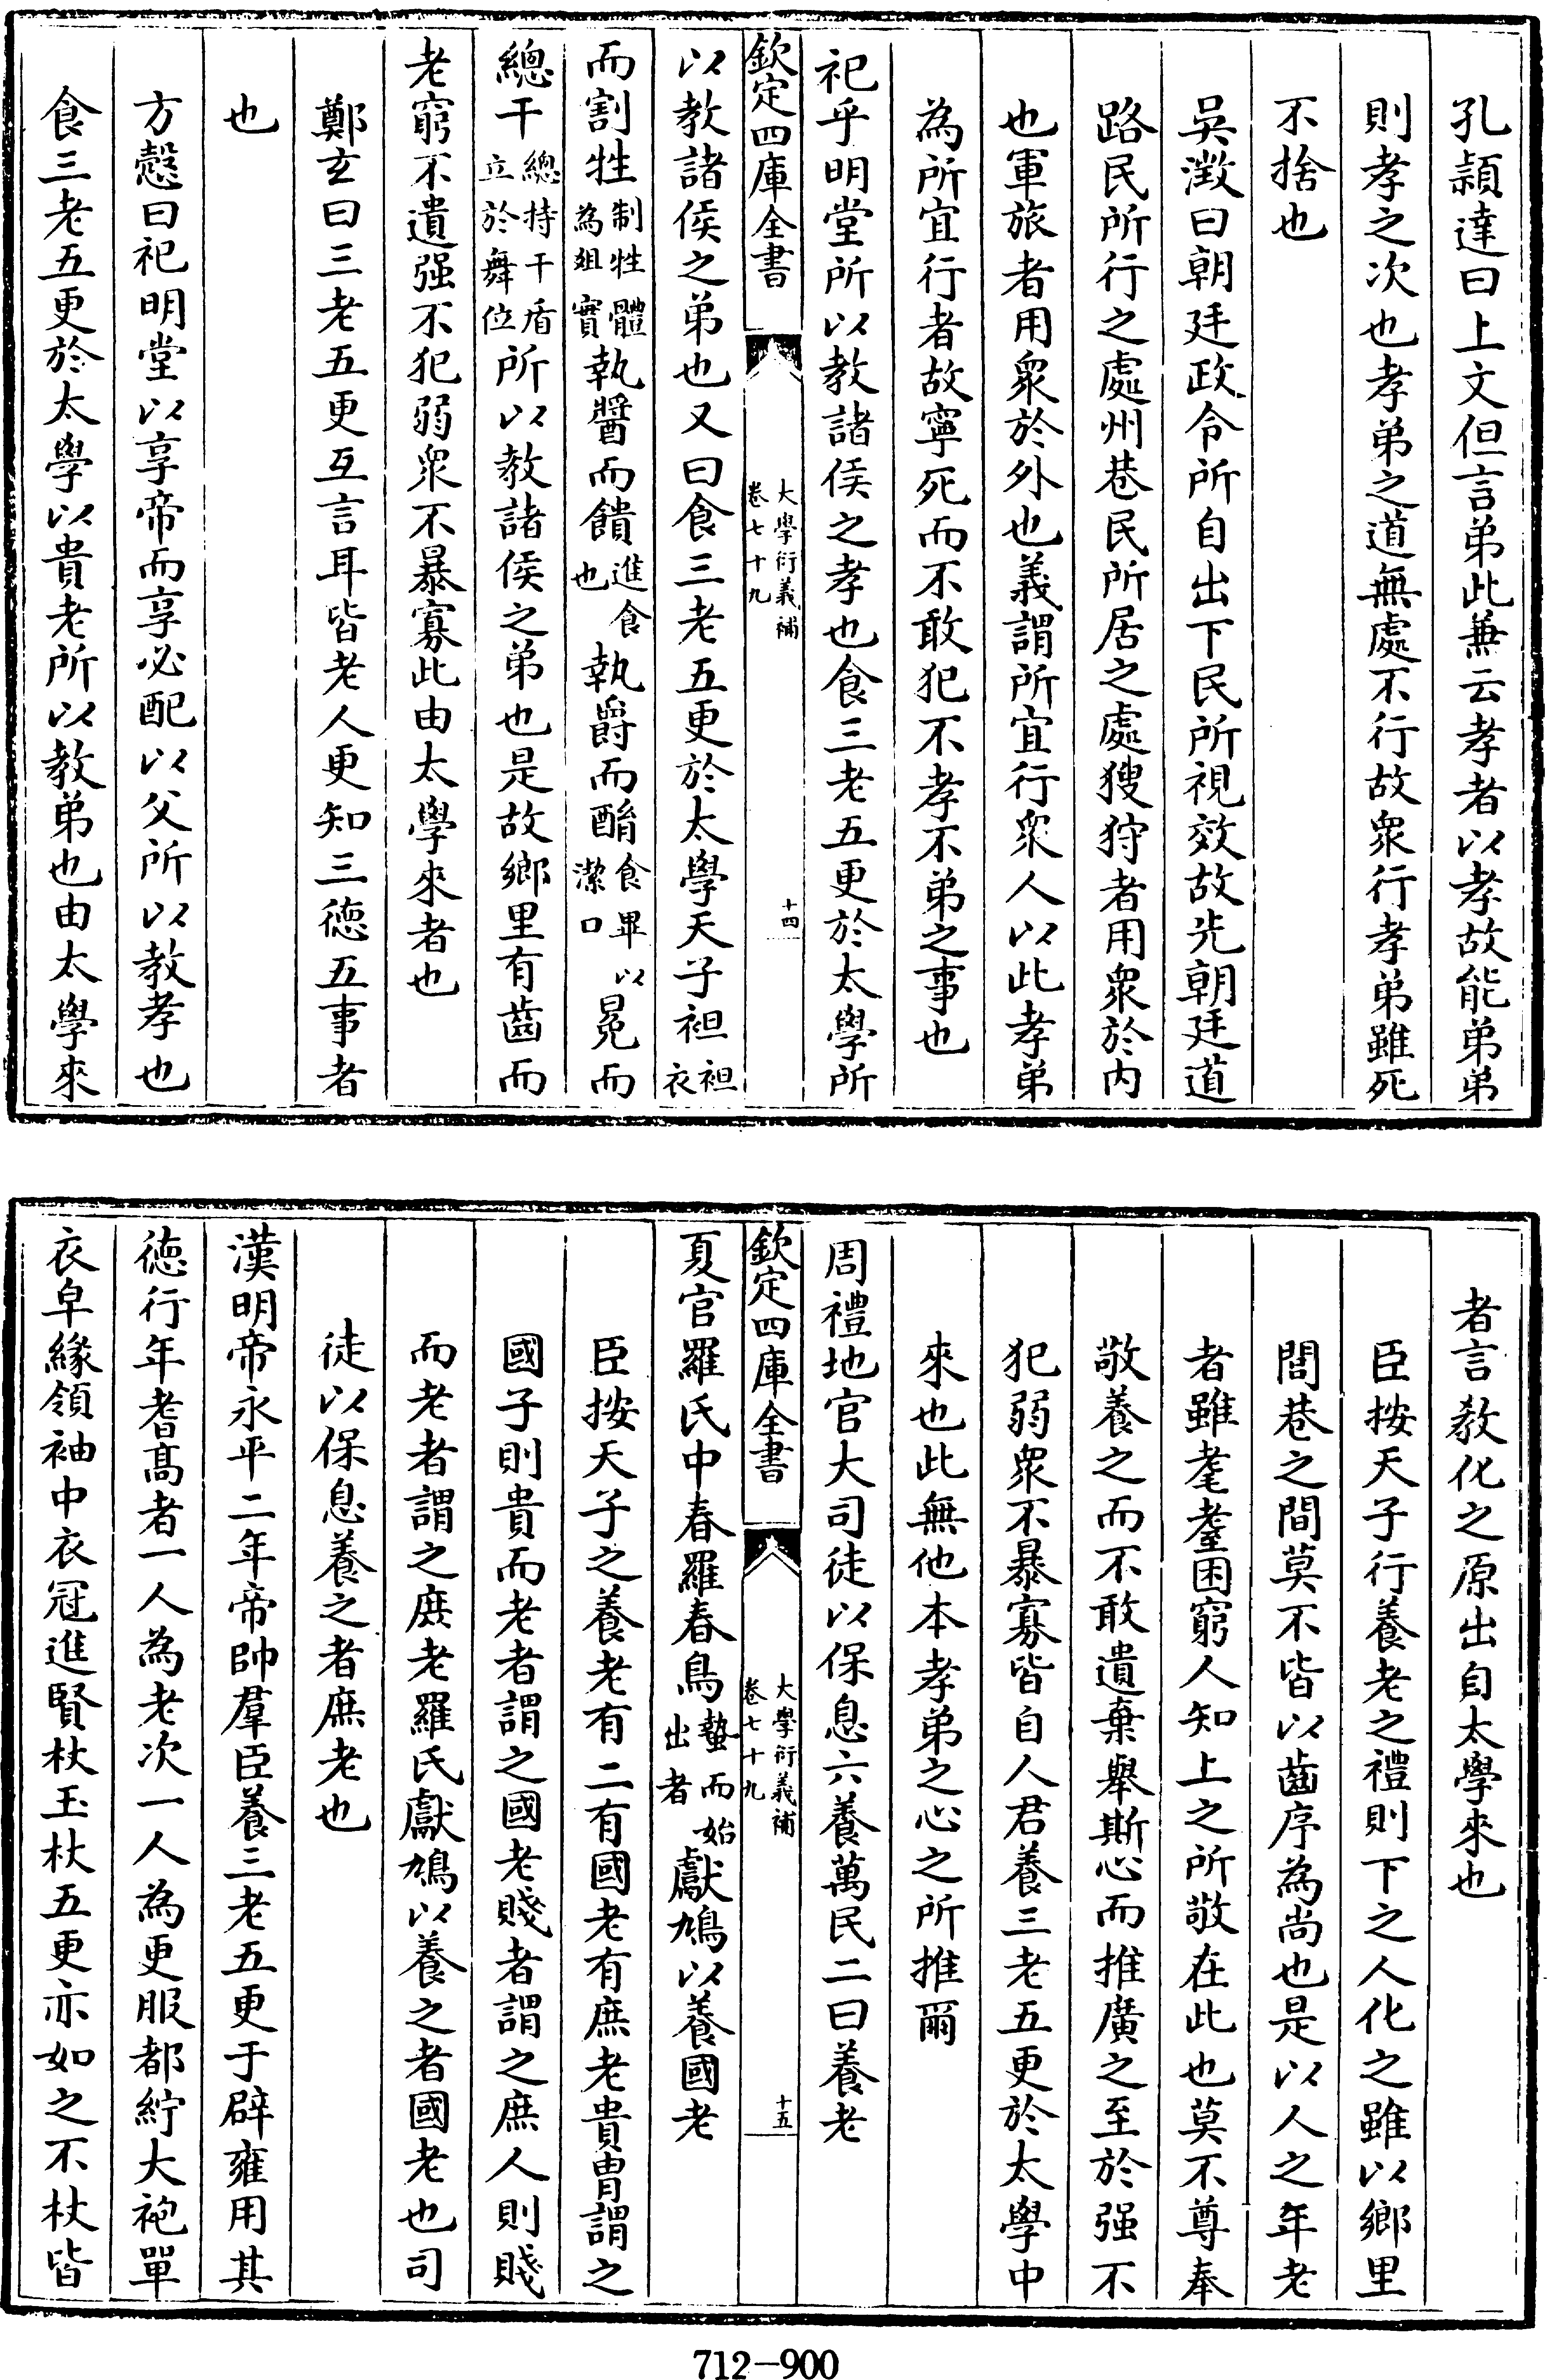 孔頴達曰上文但言弟此兼云孝者以孝故能弟弟
則孝之次也孝弟之道無處不行故衆行孝弟雖死
不捨也
吳澂曰朝廷政令所自出下民所視效故先朝廷道
路民所行之處州巷民所居之處獀狩者用衆於內
也軍旅者用衆於外也義謂所宜行衆人以此孝弟
為所宜行者故寧死而不敢犯不孝不弟之事也
祀乎明堂所以教諸侯之孝也食三老五更於太學所
欽定四庫全書
大學衍義補
卷七十九
十四
以教諸侯之弟也又曰食三老五更於太學天子袒袒衣
而割牲制牲體為俎實執醬而饋進食也執爵而酳食畢以潔口冕而
總干總持干盾立於舞位所以教諸侯之弟也是故鄉里有齒而
老窮不遺强不犯弱衆不暴寡此由太學來者也
鄭玄曰三老五更互言耳皆老人更知三德五事者
也
方慤曰祀明堂以享帝而享必配以父所以教孝也
食三老五更於太學以貴老所以教弟也由太學來
者言教化之原出自太學來也
臣按天子行養老之禮則下之人化之雖以鄉里
閭巷之間莫不皆以齒序為尚也是以人之年老
者雖耄耋困窮人知上之所敬在此也莫不尊奉
敬養之而不敢遺棄舉斯心而推廣之至於强不
犯弱衆不暴寡皆自人君養三老五更於太學中
來也此無他本孝弟之心之所推爾
周禮地官大司徒以保息六養萬民二曰養老
欽定四庫全書
大學衍義補
卷七十九
十五
夏官羅氏中春羅春鳥蟄而始出者獻鳩以養國老
臣按天子之養老有二有國老有庶老貴胄謂之
國子則貴而老者謂之國老賤者謂之庶人則賤
而老者謂之庶老羅氏獻鳩以養之者國老也司
徒以保息養之者庶老也
漢明帝永平二年帝帥羣臣養三老五更于辟雍用其
德行年耆髙者一人為老次一人為更服都紵大袍單
衣皁緣領袖中衣冠進賢杖玉杖五更亦如之不杖皆
712-900